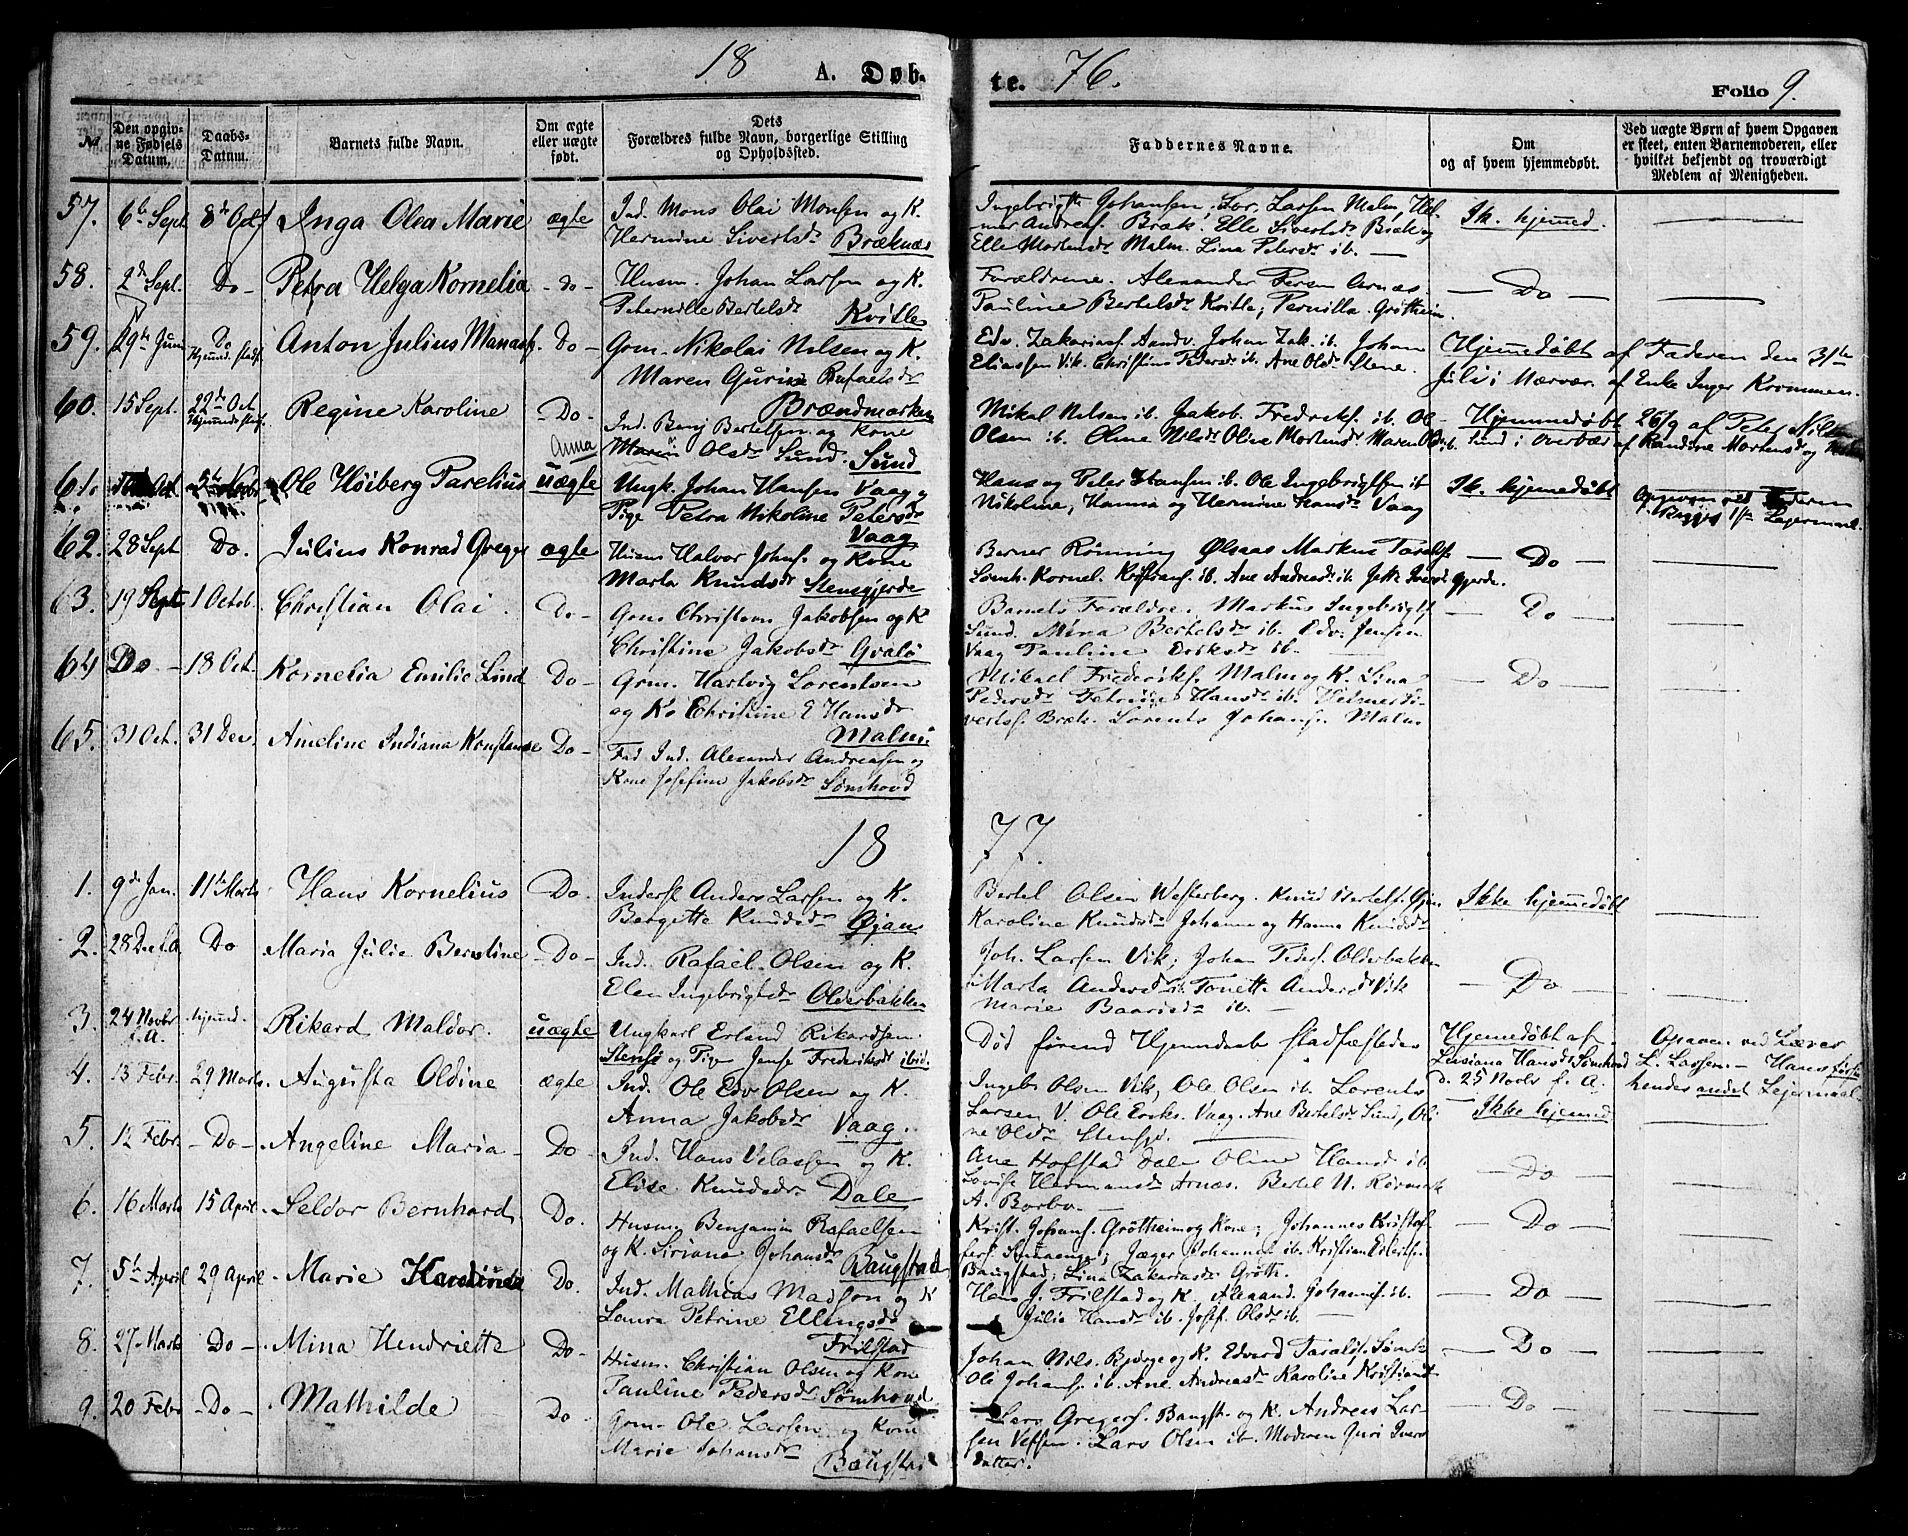 18 A. Døb-
te. 76.
Folio 9.
No.
Den opgiv-
ne Fødsels
Datum.
Daabs-
Datum.
Barnets fulde Navn.
Om ægte
eller uægte
født.
Dets
Forældres fulde Navn, borgerlige Stilling
og Opholdssted.
Faddernes Navne.
Om
og af hvem hjemmedøbt.
Ved uægte Børn af hvem Opgaven
er skeet, enten Barnemoderen, eller
hvilket bekjendt og troværdigt
Medlem af Menigheden.
57. 6te Sept. 8de Oct Inga Olea Marie ægte Ind. Mons Olai Monsen og K.
Hermine Sivertsdr Bræknæs
Ingebrigt Johansen, Lor. Larsen Malm, Hel-
mer Andreas. Bræk. Elle Sivertsdr Bræk og
Elle Mortensdr Malm. Lina Petersdr ib. —
Ik. hjemmed.
58. 2de Sept. Do Petra Helga Kornelia do Husm. Johan Larsen og K.
Peternille Bertelsdr Kvitle
Forældrene. Alexander Persen Arnæs.
Pauline Bertelsdr Kvitle, Pernilla Grötheim.
— Do —
59. 29de Juni Do Hjemd. stadf. Anton Julius Manass. Do Grm. Nikolai Nilsen og K.
Maren Gurine Rafaelsdr
Brændmarken
Edv. Zakarias. Aandv. Johan Zak. ib. Johan
Eliassen Vik. Christine Pedersdr ib. Ane Olsdr Stene.
Hjemmedøbt af Faderen den 31te
Juli i Nærvær. af Enke Inger Krommen.
60. 15 Sept. 22de Oct. Hjemmd. stadf. Regine Karoline Do Ind. Benj Bertelsen og Kone
Anna
Maren Olsdr Sund. Sund
Mikal Nilsen ib. Jakob Fredriks. ib. Ol-
Olsen ib. Oline Nilsdr Oline Mortensdr Maren Olsdr ib.
Hjemmedøbt 26/9 af Peter Nils
Sund i Overvær af Randine Mortensdr og
61. Ole Høiberg Parelius uægte Ungk. Johan Hansen Vaag og
Pige Petra Nikoline Petersdr
Vaag
Hans og Peter Hansen ib. Ole Ingebrigtsen ib
Nikoline, Hanna og Hermine Hansdr Vaag
Ik. hjemedøbt
Opgiven ved Faderen
Begges 1ste Lejermaal.
62. 28 Sept Do. Julius Konrad Greger ægte Husm Halvor Johns. og Kone
Marta Knudsdr Stensgjerde
Berner Rønning Ølsaas Markus Taralds
Sømh. Kornel. Kristians. ib. Ane Andreasdr ib. Jette Iversdr gjerde.
— Do —
63. 19 Sept 1 Octob. Christian Olai. Do Grm Christens Jakobsen og K
Christine Jakobsdr Gvalø
Barnets Forældre. Markus Ingebrigt.
Sund. Mina Bertelsdr ib. Edv. Jensen
Vaag Pauline Eriksdr ib. —
— Do —
64 Do 18 Oct. Kornelia Emilie Lind Do Grm. Hartvig Lorentsen
og Ko Christine E Hansdr
Malmö
Mikael Frederiks. Malm og K. Lina
Pedersdr Petrine Hansdr ib. Helmer Si-
verts. Bræk. Lorents Johans. Malm
— Do —
65. 31 Oct. 31 Dec. Ameline Indiana Konstanse Do Fad Ind. Alexander Andreasen og
Kone Josefine Jakobsdr Sømhovd
18 77.
1. 9de Jan. 11te Marts Hans Kornelius Do. Inderst Anders Larsen og K.
Bergette Knudsdr Øjan
Bertel Olsen Westerberg. Knud Bertels. Øjan
Karoline Knudsdr Johanne og Hanna Knudsdr
Ikke hjemmedøbt
2. 28 Dec f.A. Do Maria Julie Berntine Do Ind. Rafael Olsen og K.
Elen Ingebrigtsdr Olderbakken
Joh. Larsen Vik; Johan Peders. Olderbakken
Marta Andersdr ib Tonette Andersdr Vik
Marie Baarisdr ib. —
— Do —
3. 24 Novbr f.A. hjemmd. Rikard Maldor. uægte Ungkarl Erland Rikardsen
Stensø og Pige Jense Frederiksdr ibid.
Død førend Hjemmedaab stadfæstedes
Hjemedøbt af
Lusiana Hansdr Sømhovd
d. 25 Novbr f. A.
Opgiven ved Lærer
L. Larsen. — Hans første
hendes andet Lejermaal.
4. 13 Febr. 29 Marts Augusta Oldine ægte Ind. Ole Edv Olsen og K.
Anna Jakobsdr Vaag.
Ingeb. Olsen Vik, Ole Olsen ib. Lorents
Larsen V. Ole Eriks. Vaag. Ane Bertelsdr Sund, Oli
ne Olsdr Stensø.
— Ikke hjemed
5. 12 Febr. Do Angeline Maria Do Ind. Hans Velassen og K.
Elise Knudsdr. Dale
Ane Hofstad Dale Oline Hansdr ib
Lovise Hermansdr Arnæs. Bertel N. Rørmark
A. Borbo. —
— Do —
6. 16 Marts 15 April. Seldor Bernhard Do. Husmd Benjamin Rafaelsen
og K. Siriane Johansdr Baugstad
Krist. Johans. Grøtheim og Kone; Johannes Kristof
fers. Snuaenge; Jæger Johannes. ib. Kristian Erlerts.
Baugstad; Lina Zakariasdr Grøth.
— Do —
7. 5te April 29 April Marie Karolinda Do. Ind. Mathias Madsen og K
Laura Petrine Ellingsdr
Frilstad
Hans J. Frilstad og K. Alexand. Johannes. ib.
Julie Hansdr ib. Josef. Olsdr ib. —
— Do —
8. 27 Marts Do Mina Hendriette Do Husm. Christian Olsen og Kone
Pauline Pedersdr Sømhovd
Johan Nils. Bjørge og K. Edvard Taralds. Sømh.
Ole Johans. ib. Ane Andreasdr Karoline Kristiansdr
— Do —
9. 20 Febr Do Mathilde Do Grm. Ole Larsen og Kone
Marie Johansdr
Baugstad
Lars Gregers. Baugst. og K. Andreas Lar-
sen Vefsen. Lars Olsen ib. Moderen Guri Ivers
datter.
— Do —